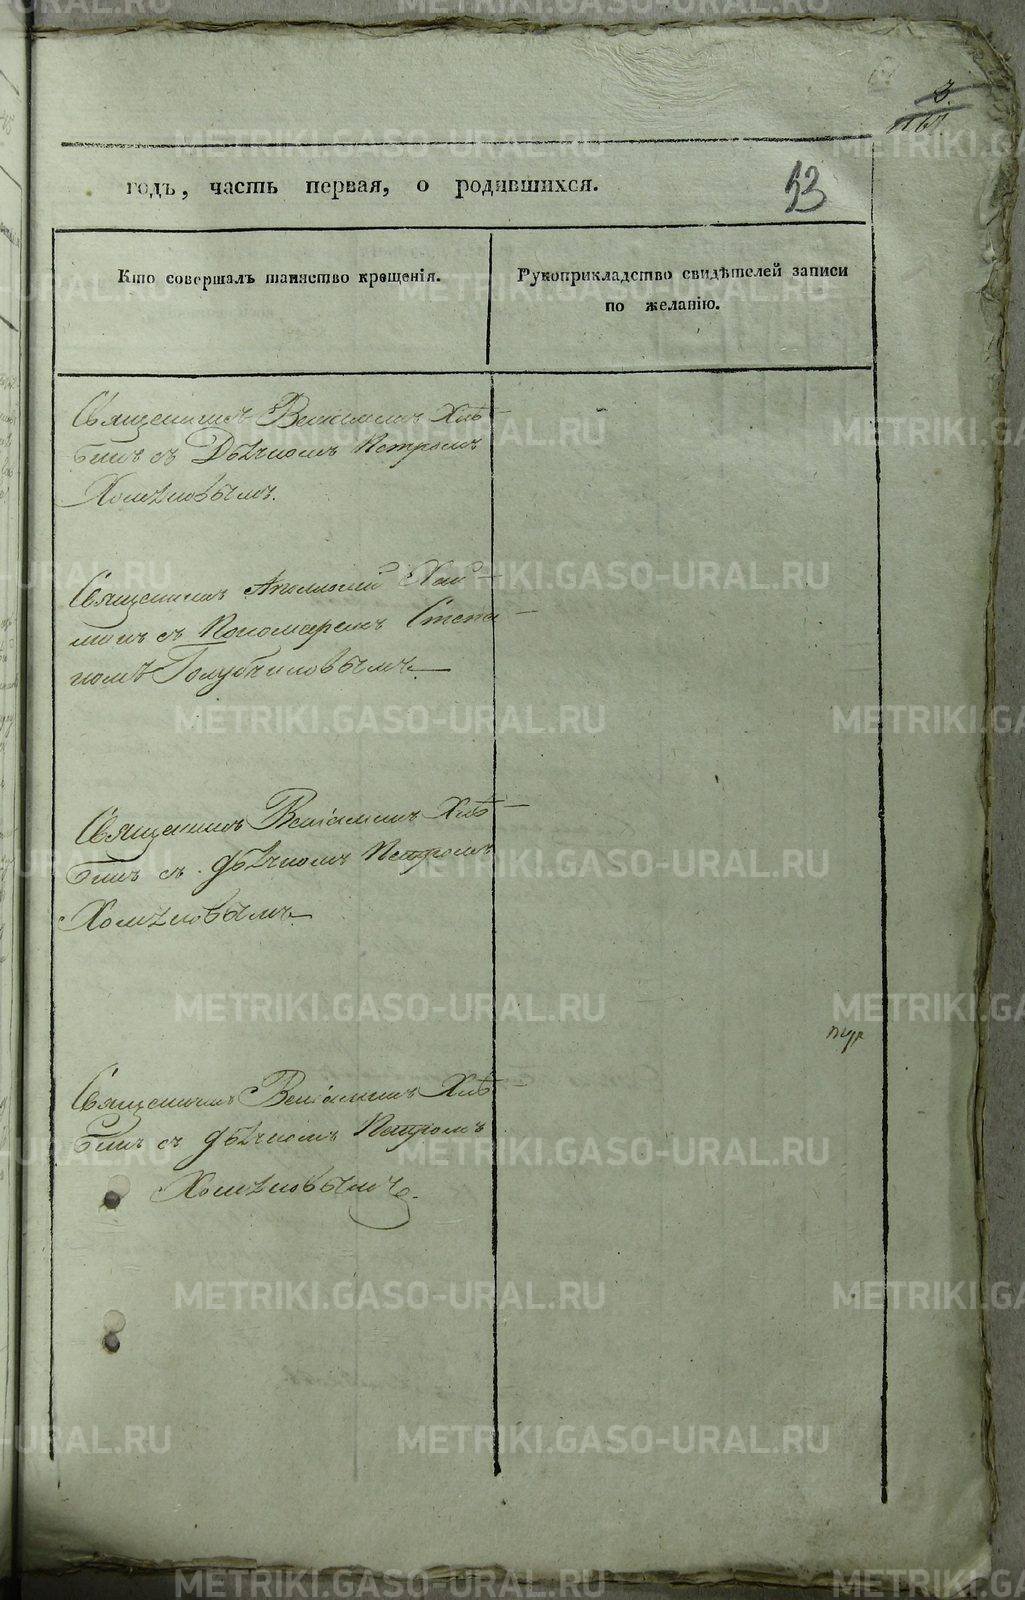 3
53
годъ, часть первая, о родившихся.
Кто совершалъ таинство крещенія.
Рукоприкладство свидѣтелей записи
по желанію.
Священникъ Веніаминъ Хлѣ-
бинъ съ Дьячкомъ Петромъ
Хомяковымъ.
Священникъ Аполлосъ
съ Пономаремъ Степа-
номъ Голубчиковымъ
Священникъ Веніаминъ Хлѣ-
бинъ съ дьячкомъ Петромъ
Хомяковымъ
Священникъ Веніаминъ Хлѣ-
бинъ съ дьячкомъ Петромъ
Хомяковымъ.
METRIKI.GASO-URAL.RU